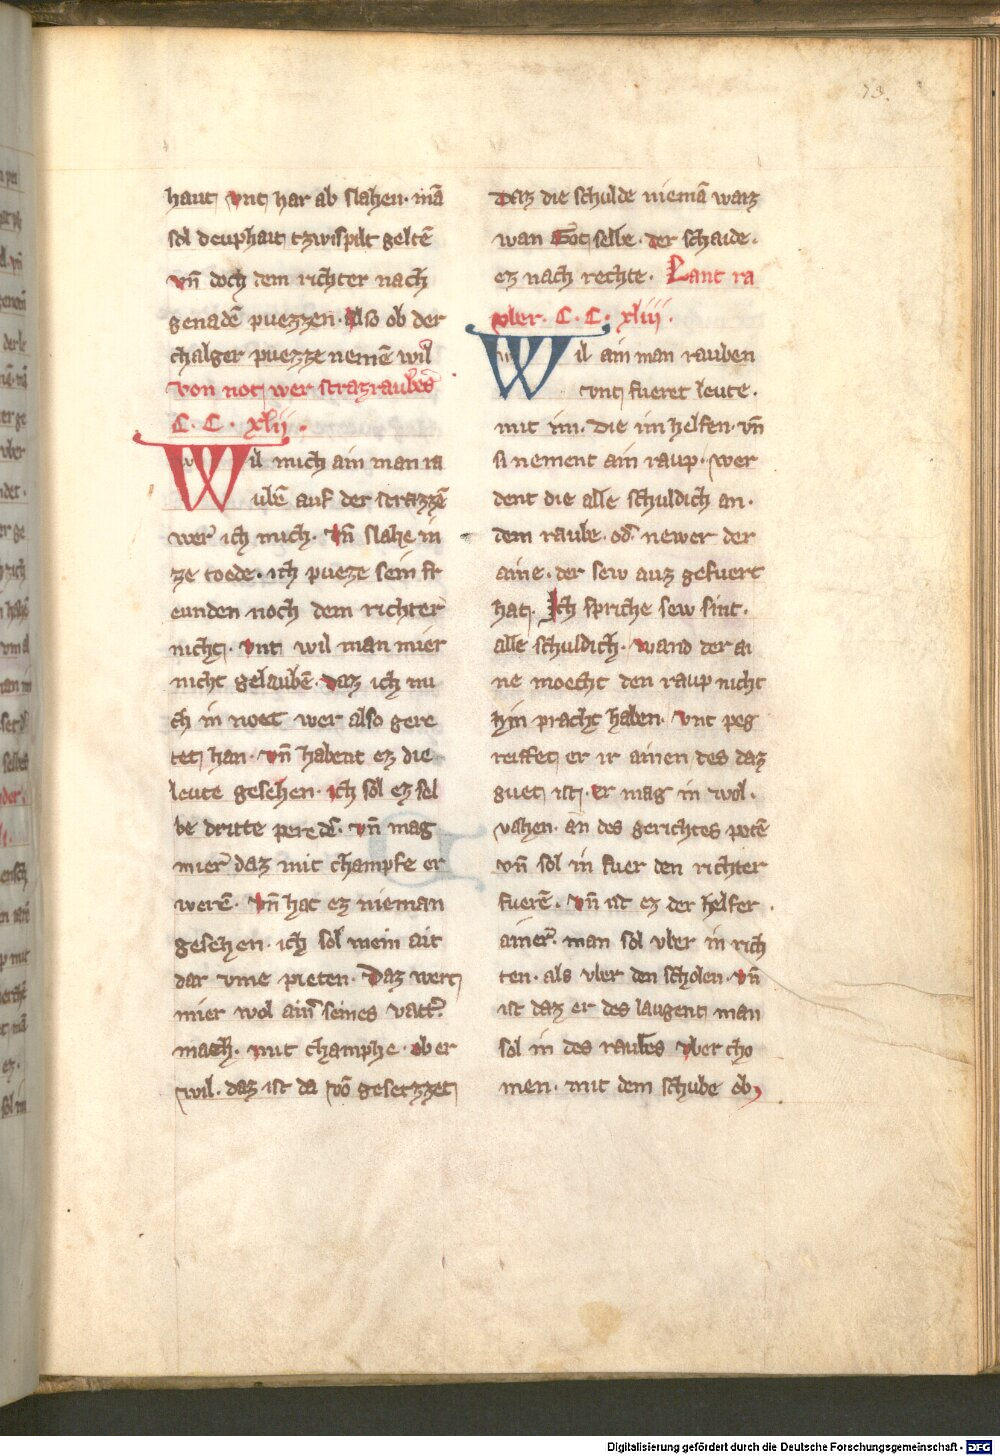 73.
haut vnt har ab slahen · mā
sol deuphait tzwispilt geltē
vn̄ doch dem richter nach
genadē puezzen · Also ob der
chalger puezze nemē wil
Von not wer strazraubes
C · C · xlii ·
Wil mich ain man ra
ubē auf der strazzē
wer ich mich · Vn̄ slahe in
ze toede · ich pueze sein fr
eunden noch dem richter
nicht · Vnt wil man mier
nicht gelaubē · daz ich mi
ch in noet wer also gere
tet han · Vn̄ habent ez die
leute gesehen · ich sol ez sel
be dritte pereds̄ · Vn̄ mag
mier daz mit champfe er
werē · Vn̄ hat ez nieman
gesehen · ich sol mein ait
dar vme pieten · Daz wert
mier wol ain̄ seines vatt̄
mach · mit champhe · ob er
wil · daz ist da vō gesetzzet
Daz die schulde niemā waiz
wan Got selbe · der schaide ·
ez nach rechte · Lant ra
vber · C · C · xliii ·
Wil ain man rauben
vnt fueret leute ·
mit im · die im helfen · vn̄
si nement ain raup · wer
dent die alle schuldich an ·
dem raube · od̄ newer der
aine · der sew auz gefuert
hat · Ich spriche sew sint ·
alle schuldich · wand der ai
ne moecht den raup nicht
hin pracht haben · Vnt peg
reiffet er ir ainen des daz
guet ist · er mag in wol ·
vahen · an des gerichtes potē
vn̄ sol in fuer den richter
fuerē · Vn̄ ist ez der helfer ·
ainer · man sol vber in rich
ten · als vber den scholen · Vn̄
ist daz er des laugent man
sol in des raubes vber cho
men · mit dem schube ob
Digitalisierung gefördert durch die Deutsche Forschungsgemeinschaft - DFG